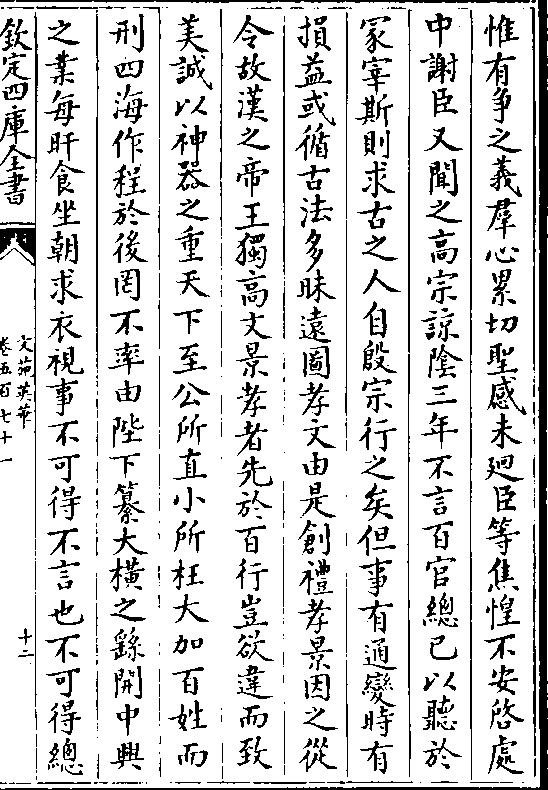 惟有争之義羣心累切聖感未廻臣等焦惶不安啓處
中謝臣又聞之高宗諒陰三年不言百官總已以聽於
冡宰斯則求古之人自殷宗行之矣但事有通變時有
損益或循古法多昧遠圖孝文由是創禮孝景因之從
令故漢之帝王獨高文景孝者先於百行豈欲違而致
美誠以神器之重天下至公所直小所枉大加百姓而
刑四海作程於後罔不率由陛下纂大橫之繇開中興
之業每旰食坐朝求衣視事不可得不言也不可得總
欽定四庫全書
文苑英華
卷五百七十一
十二